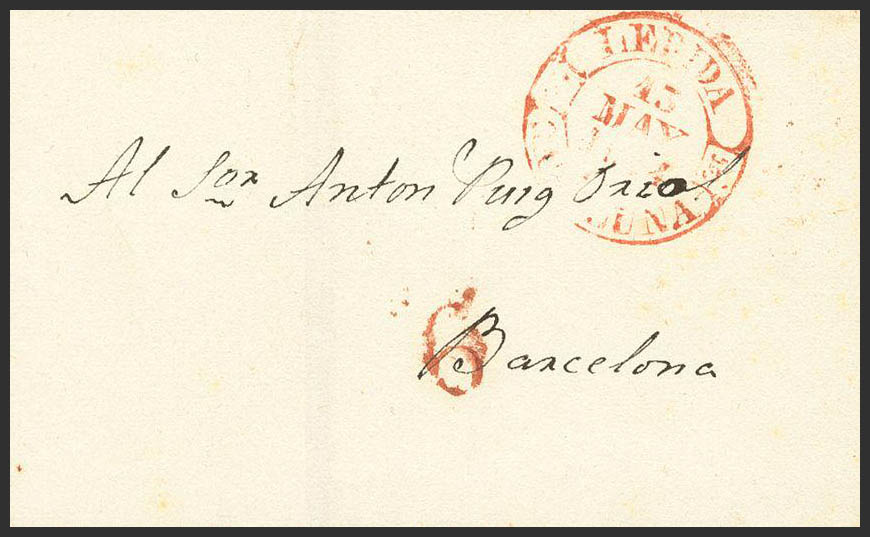 LERIDA
15
MAY
Al Sor Anton Puig Oriol
6
Barcelona